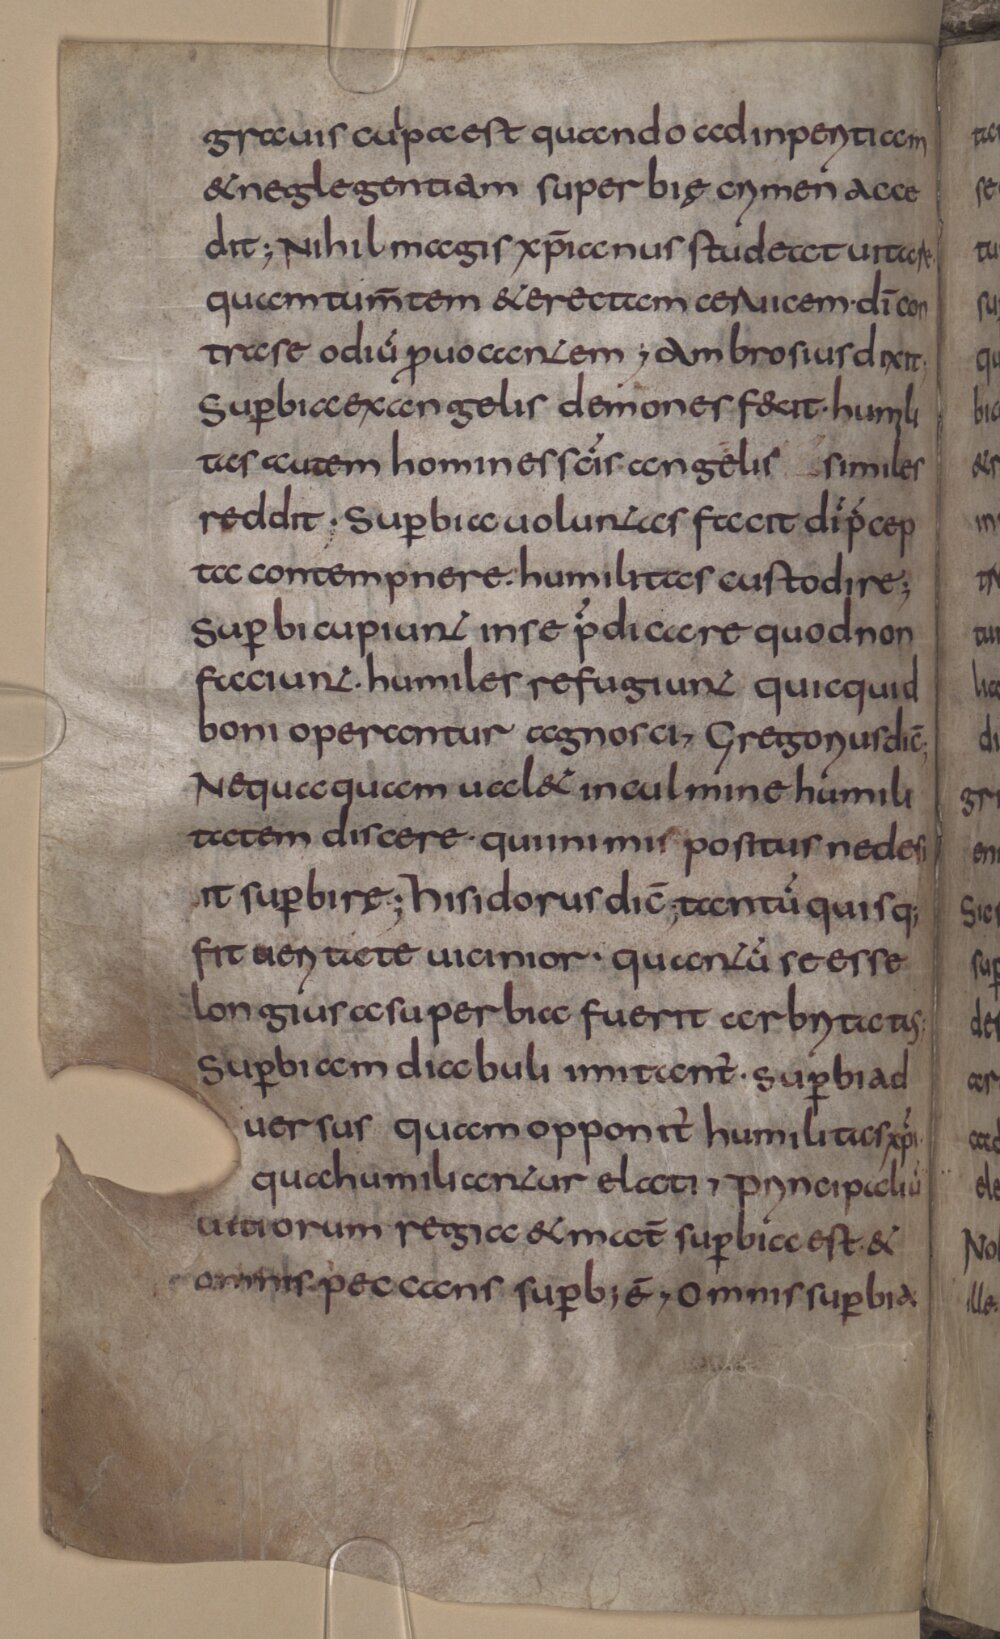 grauis culpa est quando ad inperitiam
& neglegentiam superbię crimen acce
dit; Nihil magis xp̄ianus studeat uitare
quam tum̄tem & erectam ceruicem · dī con
tra se odiū ꝓuocantem ; Ambrosius dixit;
Suꝑbia ex angelis demones fecit · humili
tas autem homines sc̄is angelis similes
reddit · Suꝑbia uoluntas facit dī p̄cep
ta contempnere · humilitas custodire;
Suꝑbi cupiunt in se p̄dicare quod non
faciunt · humiles refugiunt quicquid
boni operantur agnosci, Gregorius dic̄;
Nequaquam ual& in culmine humili
tatem discere · qui in imis positus ne desi
it suꝑbirę; hisidorus dic̄; tantū quisq;
fit ueritate uicinior · quantū se esse
longius a superbia fuerit arbritatus;
Suꝑbiam diabuli imitant̄ · Suꝑbi ad
uersus quam opponit̄ humilitas xp̄i ·
qua humiliantur elati, Principaliū
uitiorum regia & mat̄ suꝑbia est · &
omnis peccans suꝑb; ē, Omnis suꝑbia